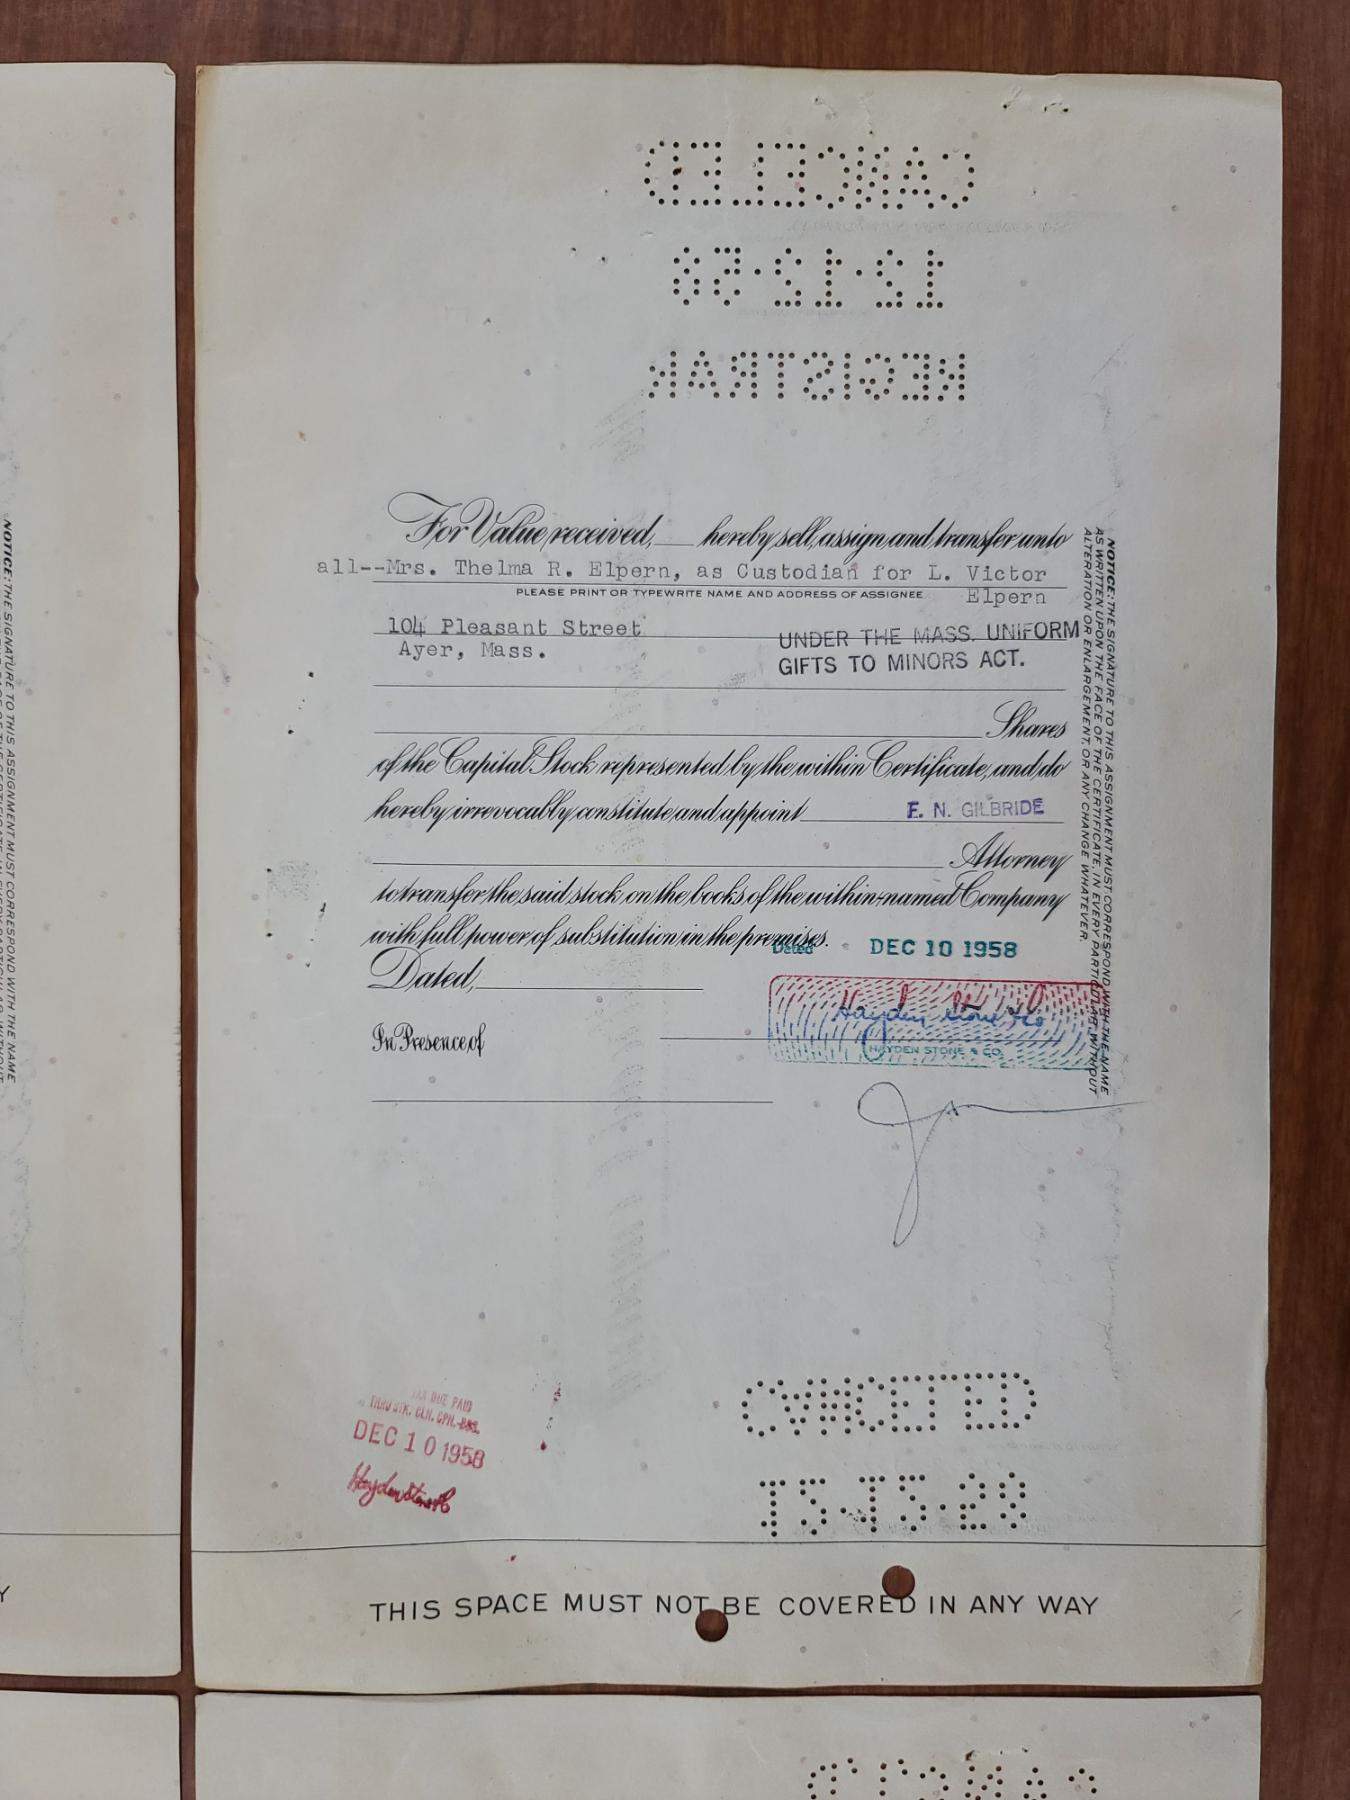 CANCELED
12·12·58
REGISTRAR
For Value received, hereby sell, assign and transfer unto
all--Mrs. Thelma R. Elpern, as Custodian for L. Victor
PLEASE PRINT OR TYPEWRITE NAME AND ADDRESS OF ASSIGNEE Elpern
104 Pleasant Street
Ayer, Mass.
UNDER THE MASS. UNIFORM
GIFTS TO MINORS ACT.
Shares
of the Capital Stock represented by the within Certificate, and do
hereby irrevocably constitute and appoint E. N. GILBRIDE
Attorney
to transfer the said stock on the books of the within-named Company
with full power of substitution in the premises.
Dated DEC 10 1958
Dated,
Hayden Stone & Co
HAYDEN STONE & CO.
In Presence of
NOTICE: THE SIGNATURE TO THIS ASSIGNMENT MUST CORRESPOND WITH THE NAME
AS WRITTEN UPON THE FACE OF THE CERTIFICATE, IN EVERY PARTICULAR, WITHOUT
ALTERATION OR ENLARGEMENT, OR ANY CHANGE WHATEVER.
TAX DUE PAID
THRU STK. CLR. CPN.-BOS.
DEC 10 1958
Hayden Stone & Co
CANCELED
12·12·58
THIS SPACE MUST NOT BE COVERED IN ANY WAY
NOTICE: THE SIGNATURE TO THIS ASSIGNMENT MUST CORRESPOND WITH THE NAME
Y